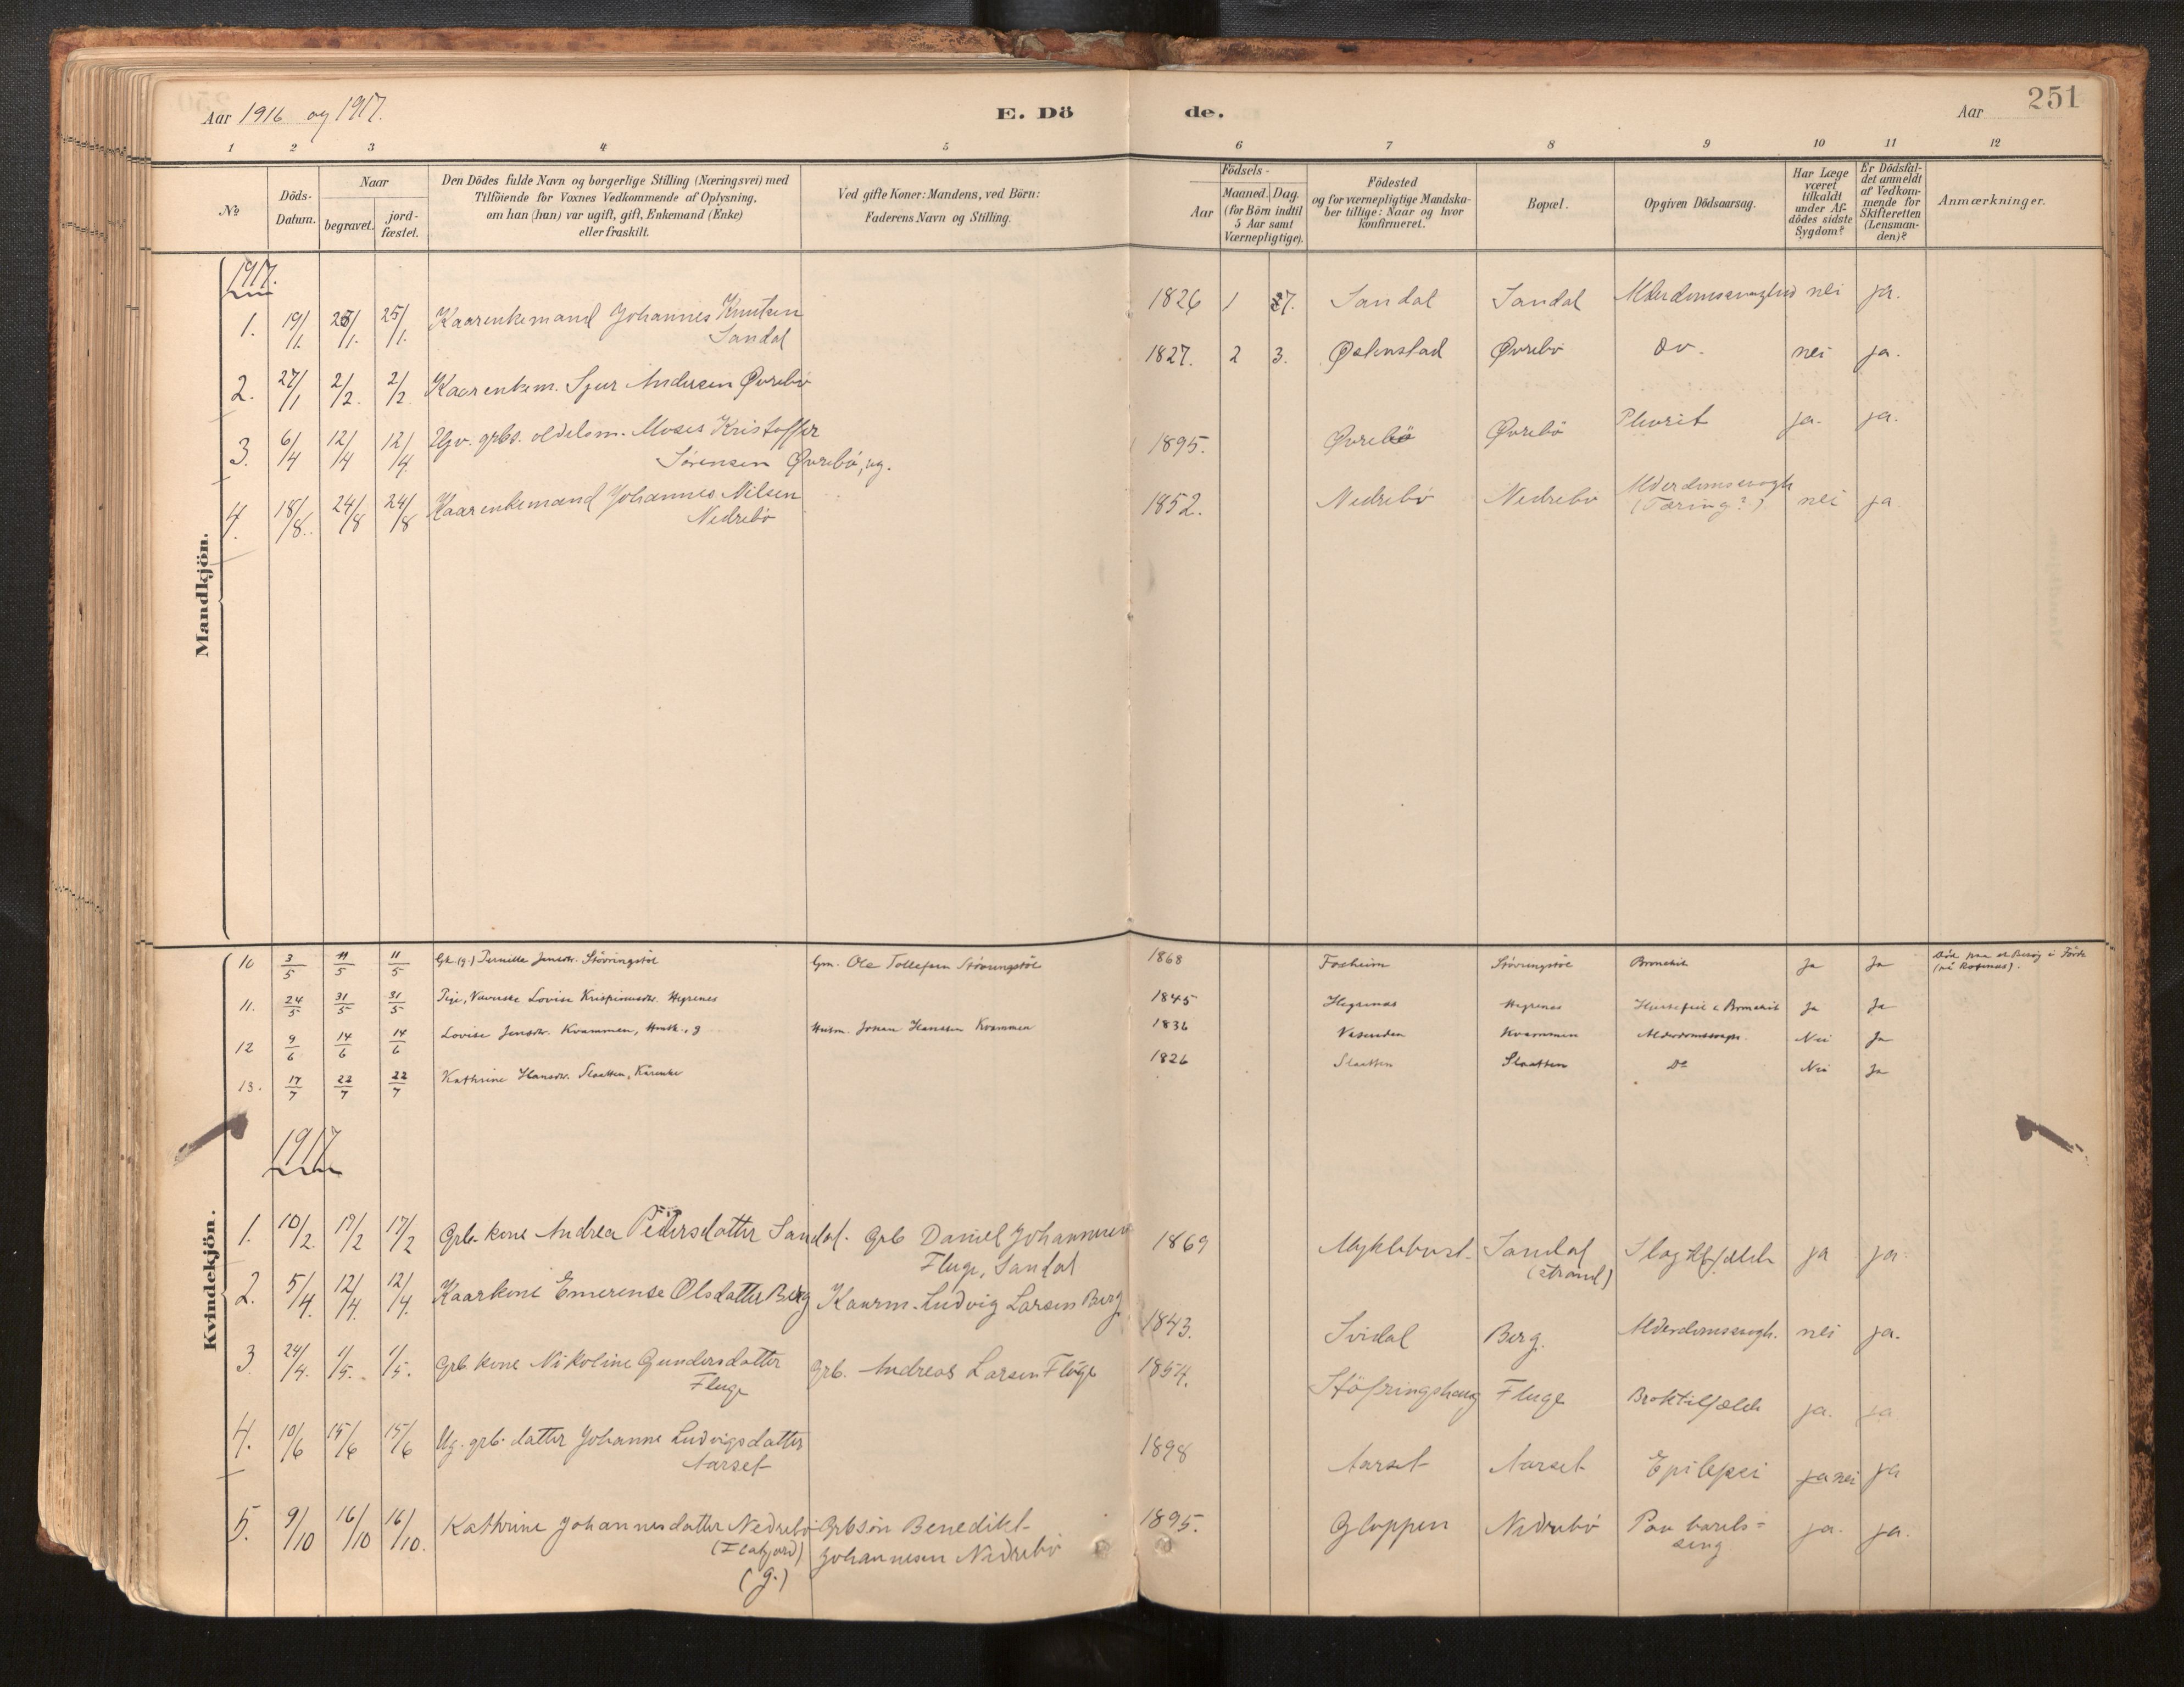 Aar 1916 og 1917. E. Dö de. Aar 251
1 2 3 4 5 6 7 8 9 10 11 12
№
Döds-Datum.
Naar
begravet.
jord-fæstet.
Den Dödes fulde Navn og borgerlige Stilling (Næringsvei) med
Tilföiende for Voxnes Vedkommende af Oplysning,
om han (hun) var ugift, gift, Enkemand (Enke)
eller fraskilt.
Ved gifte Koner: Mandens, ved Börn:
Faderens Navn og Stilling.
Födsels-
Aar
Maaned. Dag.
(for Börn indtil
5 Aar samt
Værnepligtige).
Födested
og for værnepligtige Mandska-
ber tillige: Naar og hvor
konfirmeret.
Bopæl.
Opgiven Dödsaarsag.
Har Læge
været
tilkaldt
under Af-
dödes sidste
Sygdom?
Er Dödsfal-
det anmeldt
af Vedkom-
mende for
Skifteretten
(Lensman-
den)?
Anmærkninger.
Mandkjön.
1917.
1. 19/1. 25/1. 25/1. Kaarenkemand Johannes Knutsen 1826 1 27. Sandal Sandal nei ja.
Sandal
2. 27/1 2/2. 2/2 Kaarenkem. Sjur Andersen Øvrebö 1827. 2 3. Øvrebö Do. nei ja.
3. 6/4 12/4 12/4. Moses Kristoffer 1895. Øvrebö Øvrebö Pleurit ja. ja.
Sörensen Øvrebö, ug.
4. 18/8. 24/8 24/8 Kaarenkemand Johannes Nilsen 1852. Nedrebö Nedrebö Alderdomssvagh. nei ja
Nedrebö (Tæring?)
Kvindekjön.
10 3/5 11/5 11/5 Gk (g.) Pernille Jensdtr. Störringstöl Gm. Ole Tollefsen Störringstöl 1868 Foxheim Störringstöl Bronchit Ja Ja
11. 24/5 31/5 31/5 Pige, Lovise Krispinusdtr. Hegrenes 1845 Hegrenes Hegrenes Hjertefeil & Bronchit Ja Ja
12 9/6 14/6 14/6 Lovise Jensdtr. Kvammen, Husk., g Husm. Johan Hanssen Kvammen 1836 Vasenden Kvammen Alderdomssvagh. Nei Ja
13. 17/7 22/7 22/7 Kathrine Hansdtr. Slaatten, Kårenke 1826 Slaatten Slaatten Do Nei Ja
1917
1. 10/2. 17/2 17/2 Grb. kone Andrea Pedersdatter Sandal. Grb Daniel Johannesen 1869 Myklebust Sandal Slagtilfælde ja ja.
Fluge, Sandal (strand)
2. 5/4. 12/4. 12/4. Kaarkone Emerense Olsdatter Berg Kaarm. Ludvig Larsen Berg 1843. Svidal Berg. Alderdomssvagh. nei ja.
3 24/4. 1/5. 1/5. Grb. kone Nikoline Gundersdatter Grb. Andreas Larsen Fluge 1854. Stöfringshaug Fluge Broktilfælde ja. ja
Fluge
4. 10/6 15/6 15/6 Ug. grb. datter Johanne Ludvigsdatter 1898 Aarset Aarset Epilepsi ja nei ja
Aarset
5. 9/10 16/10 16/10. Kathrine Johannesdatter Nedrebö Grbsön Benedikt 1895. Gloppen Nedrebö Paa barels= ja. ja.
Johannesen Nedrebö seng
(g.)